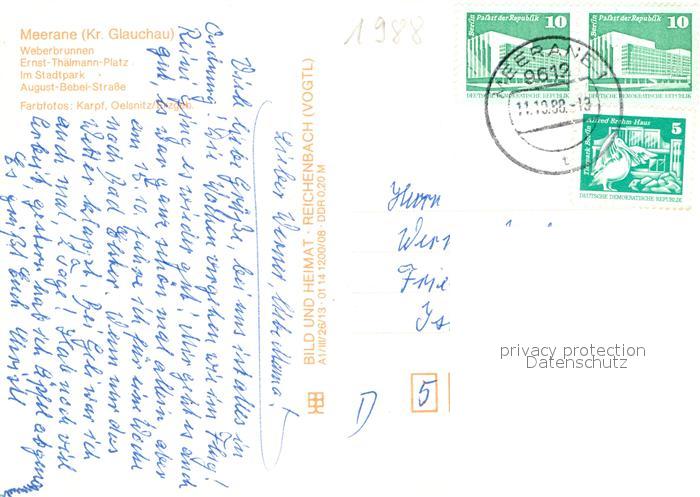 Meerane (Kr. Glauchau)
Weberbrunnen
Ernst-Thälmann-Platz
Im Stadtpark
August-Bebel-Straße
Farbfotos: Karpf, Oelsnitz/Erzgeb.
1988
Berlin Palast der Republik 10
DEUTSCHE DEMOKRATISCHE REPUBLIK
Berlin Palast der Republik 10
DEUTSCHE DEMOKRATISCHE REPUBLIK
Tierpark Berlin Alfred Brehm Haus 5
DEUTSCHE DEMOKRATISCHE REPUBLIK
MEERANE 1
9612
11.10.88.-13
t
BILD UND HEIMAT · REICHENBACH (VOGTL)
A1/III/26/13 01 14 1200/08 · DDR 0,20 M
Lieber Werner, liebe Mama!
Viele liebe Grüße, bei uns ist alles in
Ordnung! Die Wochen vergehen wie im Flug!
wieder gut! Mir geht es auch
gut, es war ganz schön mal allein, aber
am 15.10. fahre ich für eine Woche
nach Bad Elster. Wenn nur das
Wetter klappt. Bei war ich
auch mal 2 Tage! Hab noch viel
Arbeit, gestern hab ich Äpfel
Es grüßt Euch
Herrn
Wer
Frie
Is
D 5
privacy protection
Datenschutz